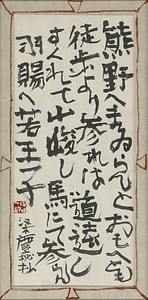 熊野へまゐらむとおもへども
徒歩より参れば道遠し
すぐれて山峻し馬にて参れ
羽賜べ若王子
梁塵秘抄